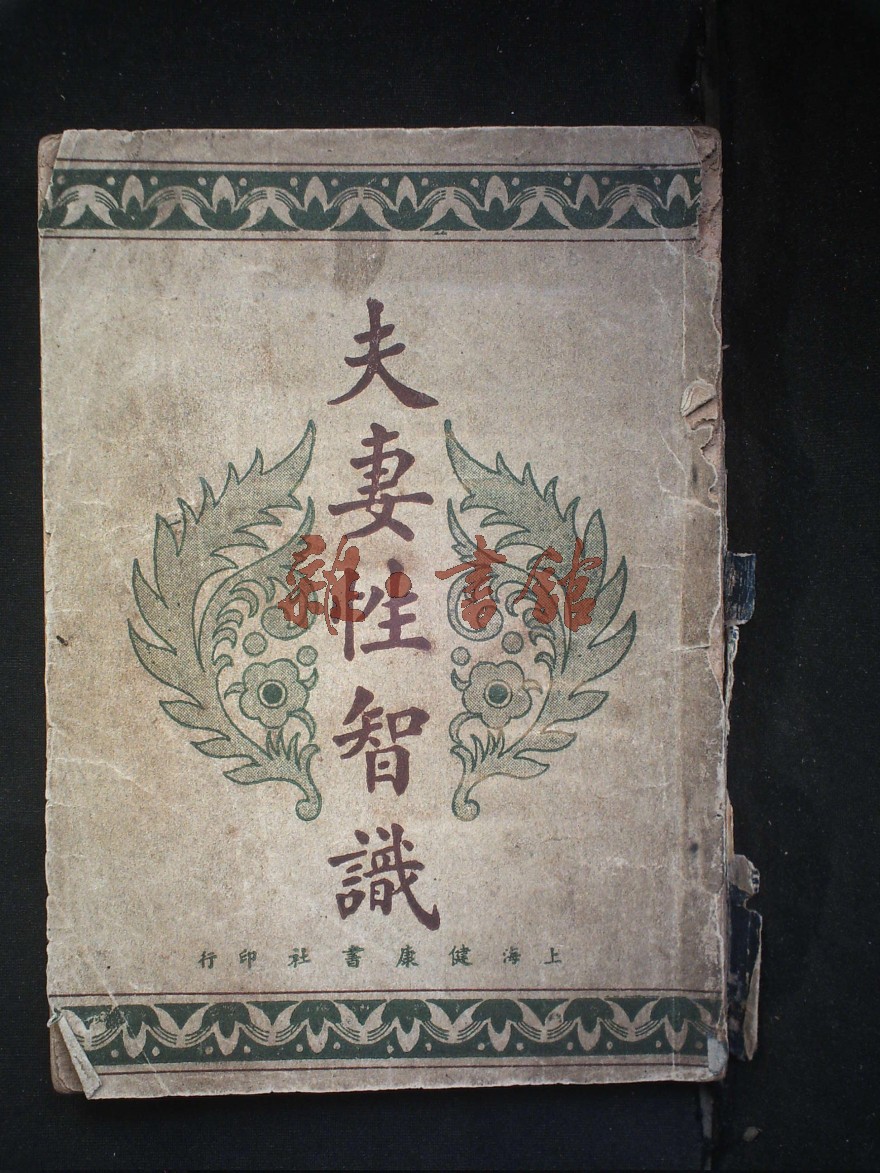 夫妻性智識
雜·書館
上海健康書社印行